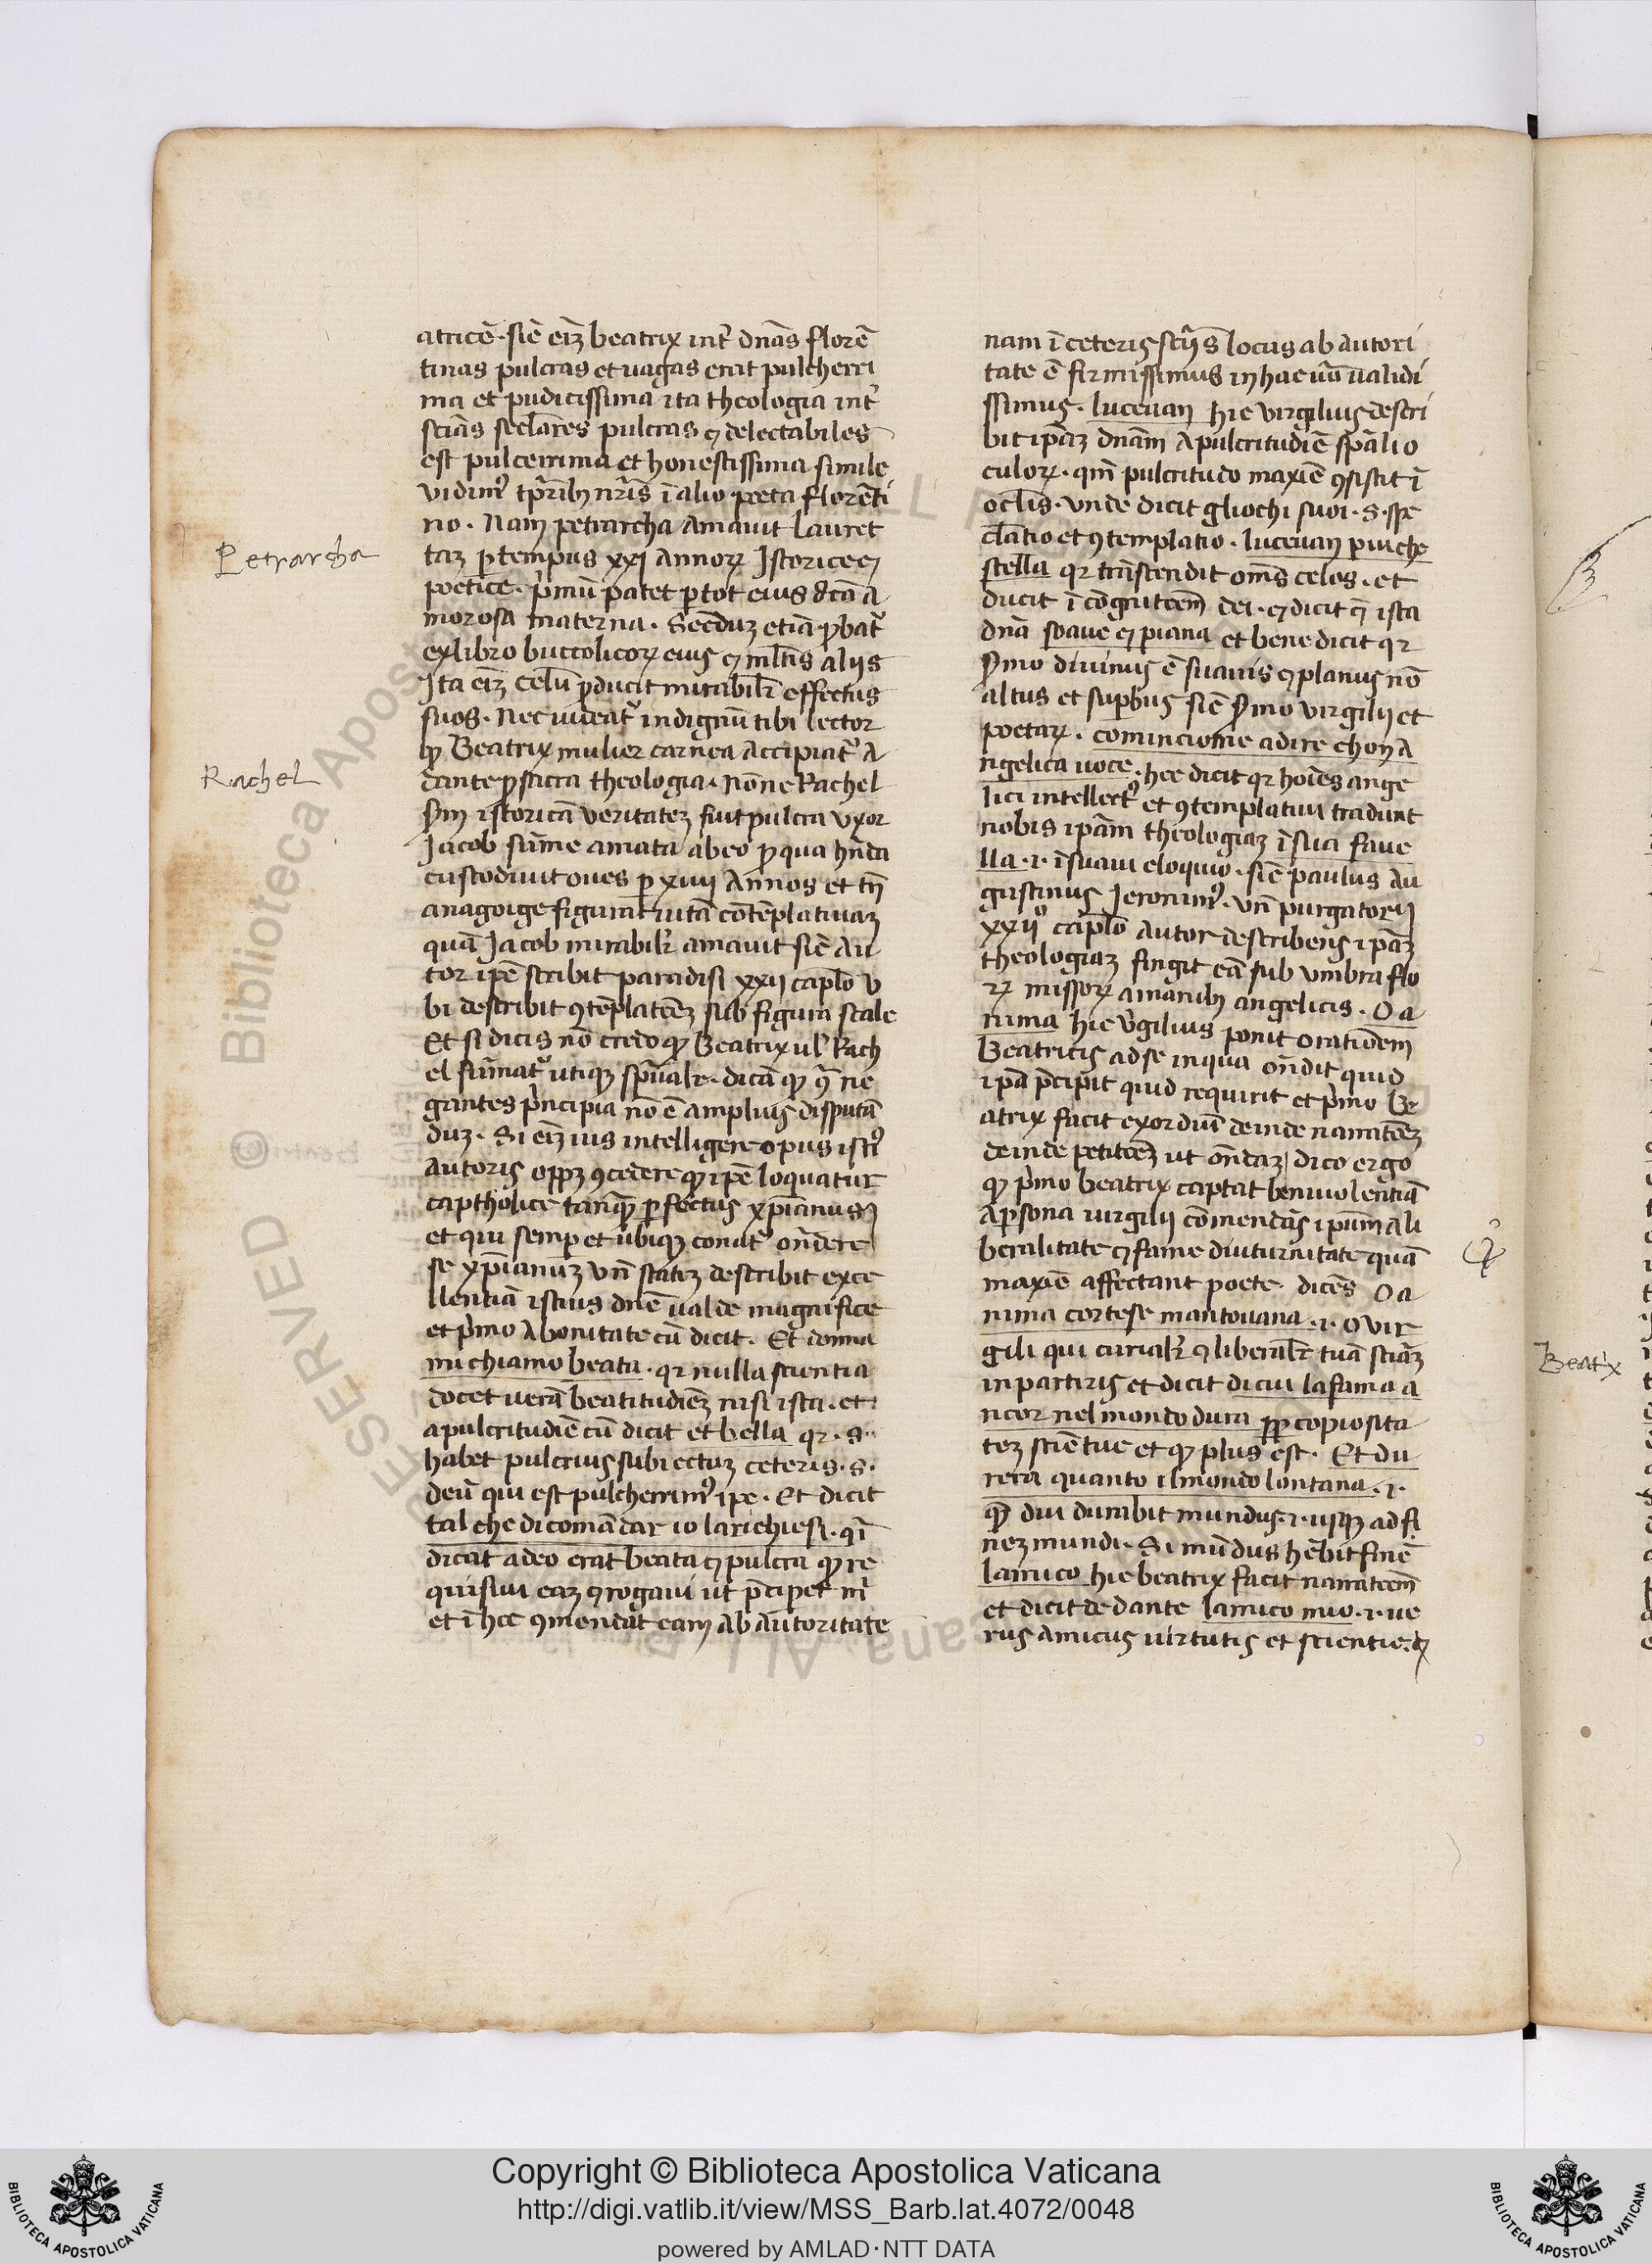 atricē · sic̄ eī₃ beatrix int̉ dn̄as florē
tinas pulcras et uagas erat pulcherri
ma et pudicissima ita theologia int̉
scīas secl̄ares pulcras ⁊ delectabiles
est pulcerrima et honestissima simile
vidimꝰ tp̄ribꝫ nr̄is ī alio poeta florēti
no · Nam petrarcha amauit lauret
taꝫ ꝑ tempus xxj annoꝝ Istorice ⁊
poetice · p̉mū patet ꝑ tot eius dcā a
morosa materna · Secūduꝫ etiā ꝓbat̉
ex libro buccolicoꝝ eius ⁊ ml̄tis aliis
Ita eīꝫ celū ꝓducit mirabilr̄ effectus
suos · Nec uideat̉ indignū tibi lector
ꝙ Beatrix mulier carnea accipiat̉ a
dante ꝓ sacra theologia · Nōne Rachel
Petrarcha
Rachel
ẜm istoricā veritateꝫ fuit pulcra vxor
Jacob sūme amata ab eo ꝓ qua hn̄da
custodiuit oues ꝑ xiiij Annos et tn̄
anagoige figurat uitā contēplatiuaꝫ
quā Jacob mirabilr̄ amauit sic̄ au
tor ip̄e scribit paradisi xxij cap̄lo v
bi describit ꝯtēplatōeꝫ sub figura scale
Et si dicis nō credo ꝙ Beatrix ul̄ Rach
el sūmat̉ utiqꝫ sp̄ualr̄ · dicā ꝙ ꝯ̄ ne
gantes p̉ncipia nō ē amplius disputā
duꝫ · Si eīꝫ uis intelligere opus istiꝰ
autoris opꝫ ꝯcedere ꝙ ip̄e loquatur
captholice tanqꝫ ꝑfectus xp̄ianus
et qui semꝑ et ubiqꝫ conat̉ on̄dere
se xp̄ianuꝫ vn̄ stateꝫ describit exce
llentiā istius dn̄e ualde magnifice
et p̉mo a bonitate cū dicit · Et donna
mi chiamo beata · qr nulla scientia
docet uerā beatitudīeꝫ nisi ista · et
a pulcritudīe cū dicit et bella qr · s·
habet pulcrius subiectuꝫ ceteris · s ·
deū qui est pulcherrimꝰ ip̄e · Et dicit
tal che di comādar io la richiesi · qī
dicat adeo erat beata ⁊ pulcra ꝙ re
quisiui eaꝫ ⁊ rogaui ut p̄ciperet m̄
et ī hoc ꝯmendat eam ab autoritate
nam ī ceteris sciīs locus ab autori
tate ē firmissimus in hac uō ualidi
ssimus · luceuan hic virgilius descri
bit ip̄aꝫ dn̄am a pulcritudīe sp̄ali o
culoꝝ · qm̄ pulcritudo maxīe ꝯsistit ī
oclīs · vnde dicit gliochi suoi · s · spe
cl̄atio et ꝯtemplatio · luceuan piu che
stella qr trāscendit om̄s celos · et
ducit ī cōgnitōem dei · ⁊ dicit ꝙ ista
dn̄a soaue ⁊ piana et bene dicit qr
ẜmo diuinus ē suauis ⁊ planus nō
altus et suꝑbus sic̄ ẜmo virgilij et
poetaꝝ · cominciome a dire chon a
ngelica uoce · hec dicit qr hoīes ange
lici intellectꝰ et ꝯtemplatiui tradunt
nobis ip̄am theologiaꝫ ī sua faue
lla · i · ī suaui eloquio · sic̄ paulus au
gustinus Jeronimꝰ · vn̄ purgatorij
xxijº cap̄lo autor describens ip̄aꝫ
theologiaꝫ fingit eā sub umbra flo
ꝝ missoꝝ a manibꝫ angelicis · O a
nima hic v̉gilius ponit orationem
Beatricis ad se in qua on̄dit quid
ip̄a p̄cipit quid requirit et p̉mo be
atrix facit exordiū deinde narratōeꝫ
deinde petitōeꝫ ut on̄daꝫ / dico ergo
ꝙ p̉mo beatrix captat beniuolentiā
a ꝑsona uirgilij cōmendās ip̄um a li
beralitate ⁊ fame diuturnitate quā
maxīe affectant poete · dicēs O a
nima cortese mantouana · i · o vir
gili qui curialr̄ ⁊ liberalr̄ tuā sciāꝫ
inpartiris et dicit di cui la fama a
ncor nel mondo dura ꝓꝑ copiosita
teꝫ sciētie et ꝙ plus est · Et du
rera quanto il mondo lontana · i ·
qꝫ diu durabit mundus · i · usqꝫ ad fi
neꝫ mundi · Si mūdus hēbit finē
lamico hic beatrix facit narratōem
et dicit de dante lamico mio · i · ue
rus amicus uirtutis et scientie · ⁊
Beatrix
Copyright © Biblioteca Apostolica Vaticana
http://digi.vatlib.it/view/MSS_Barb.lat.4072/0048
powered by AMLAD·NTT DATA
BIBLIOTECA APOSTOLICA VATICANA
BIBLIOTECA APOSTOLICA VATICANA